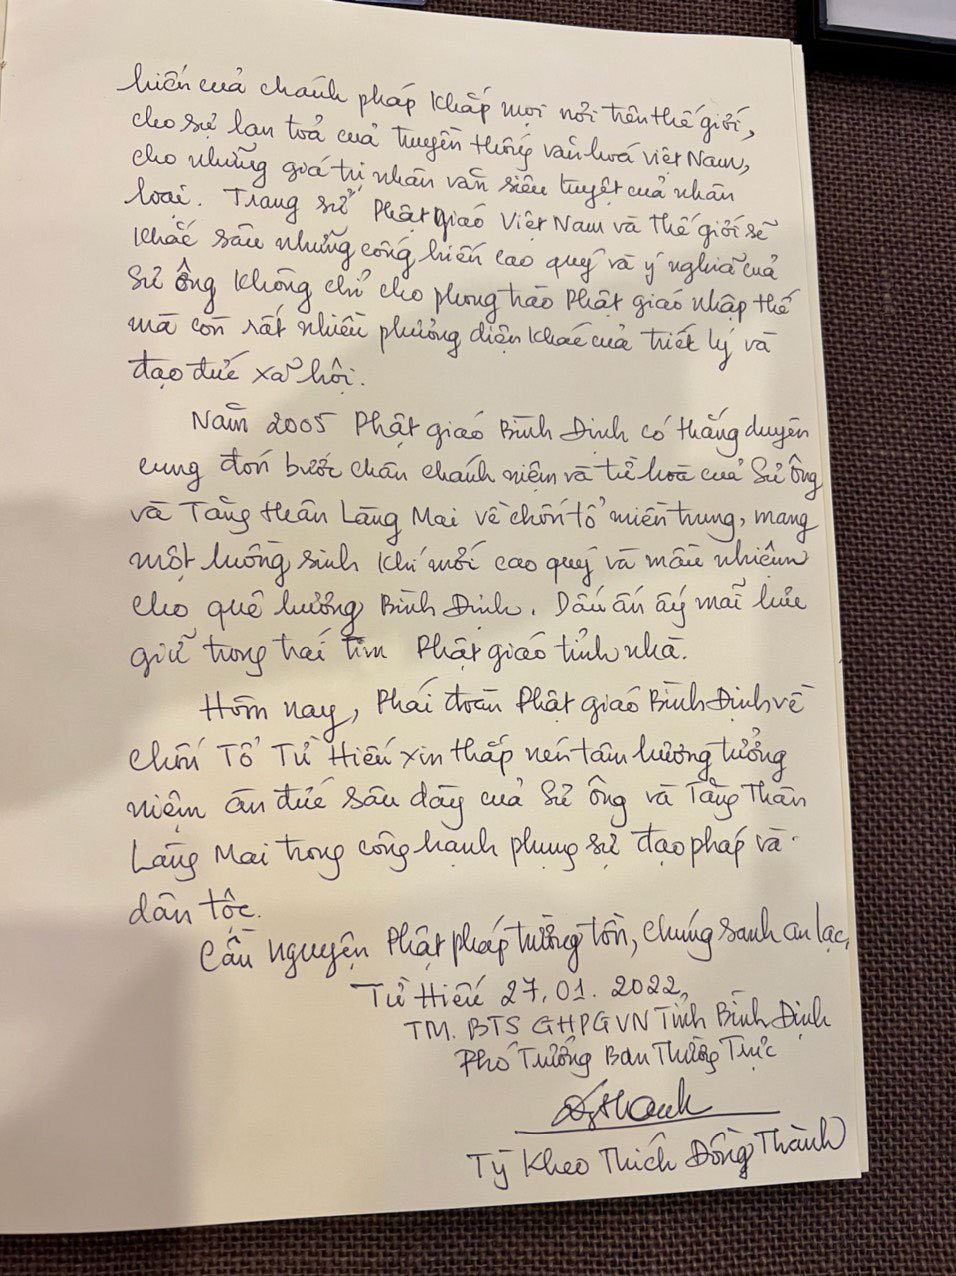 hiến của chánh pháp khắp mọi nơi trên thế giới,
cho sự lan toả của truyền thống văn hoá Việt Nam,
cho những giá trị nhân văn siêu tuyệt của nhân
loại. Trang sử Phật giáo Việt Nam và thế giới sẽ
khắc sâu những cống hiến cao quý và ý nghĩa của
Sư Ông không chỉ cho phong trào Phật giáo nhập thế
mà còn rất nhiều phương diện khác của triết lý và
đạo đức xã hội.
Năm 2005 Phật giáo Bình Định có thắng duyên
cung đón bước chân chánh niệm và từ hoà của Sư Ông
và Tăng thân Làng Mai về chốn tổ miền trung, mang
một luồng sinh khí mới cao quý và mầu nhiệm
cho quê hương Bình Định. Dấu ấn ấy mãi lưu
giữ trong trái tim Phật giáo tỉnh nhà.
Hôm nay, Phái đoàn Phật giáo Bình Định về
chốn Tổ Từ Hiếu xin thắp nén tâm hương tưởng
niệm ân đức sâu dày của Sư Ông và Tăng Thân
Làng Mai trong công hạnh phụng sự đạo pháp và
dân tộc.
Cầu nguyện Phật pháp trường tồn, chúng sanh an lạc,
Từ Hiếu 27.01.2022,
TM. BTS GHPGVN Tỉnh Bình Định
Phó Trưởng Ban Thường Trực
Tỳ Kheo Thích Đồng Thành